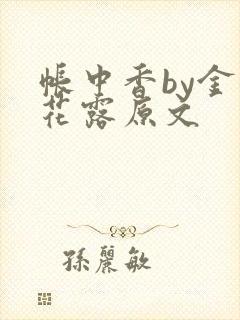 帳中香by金
花露原文
孫麗敏